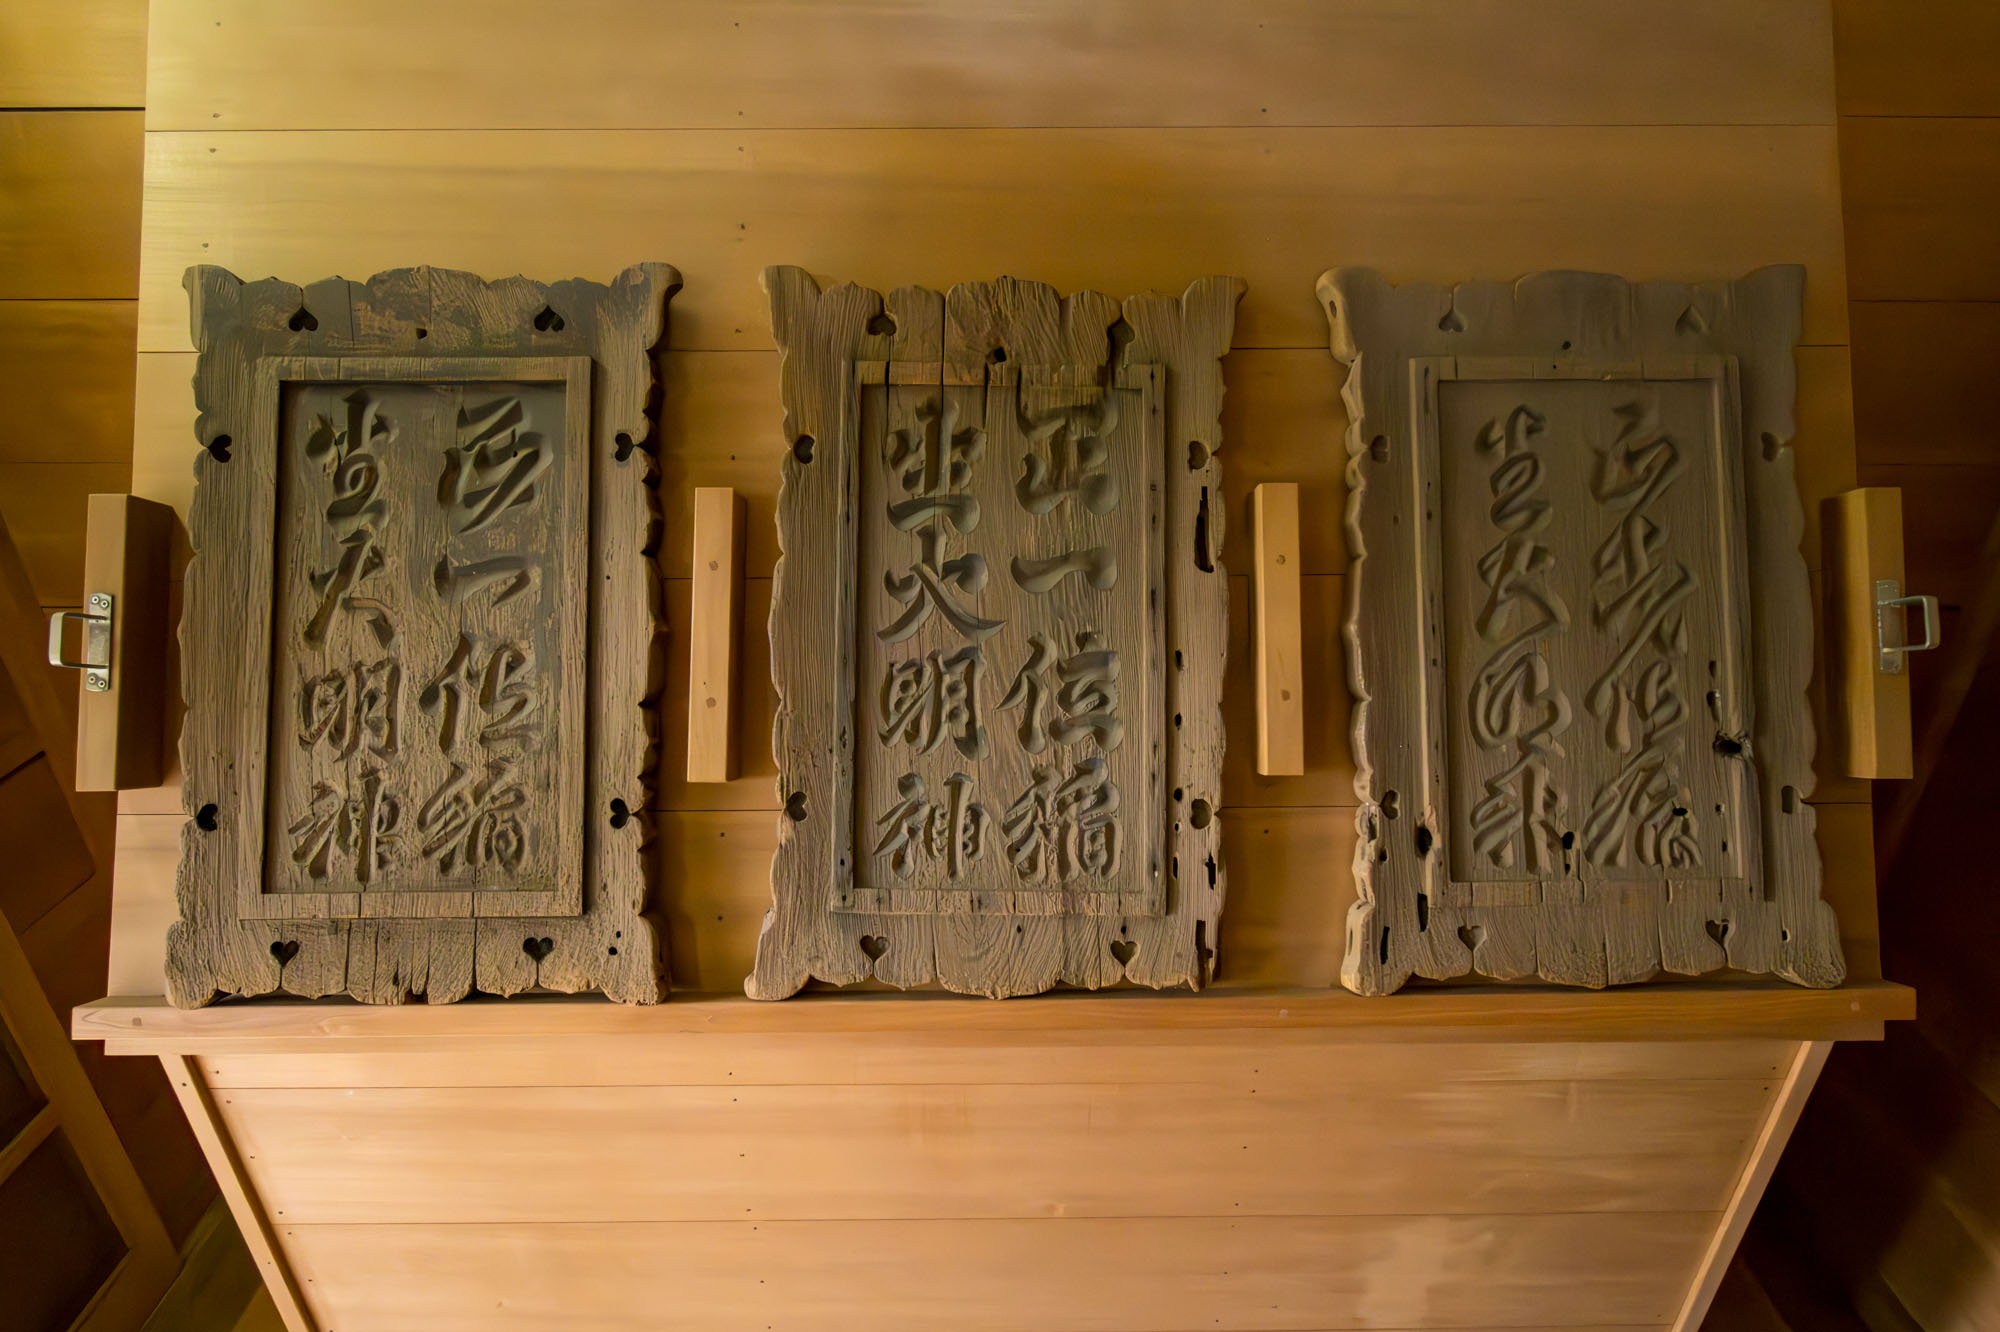 正一位稲
生大明神
正一位稲
生大明神
正一位稲
生大明神